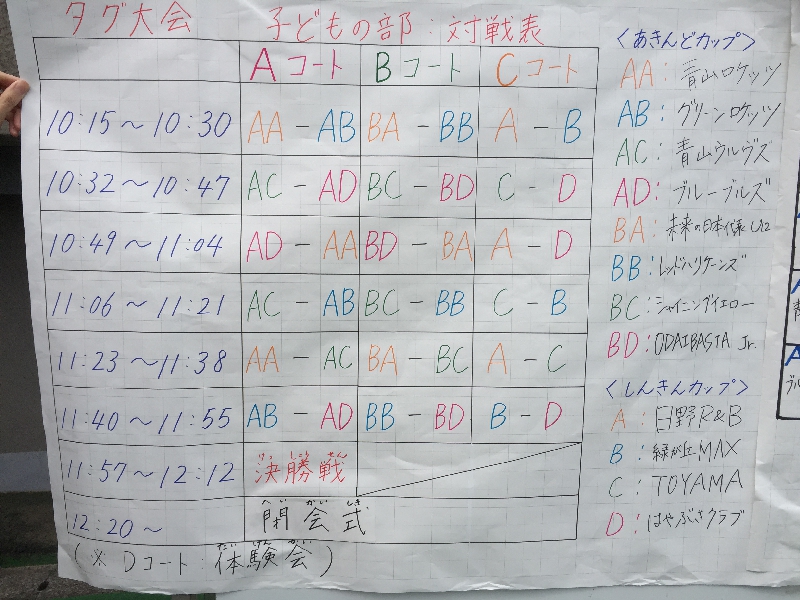 タグ大会 子どもの部:対戦表
Aコート Bコート Cコート
10:15〜10:30 AA-AB BA-BB A-B
10:32〜10:47 AC-AD BC-BD C-D
10:49〜11:04 AD-AA BD-BA A-D
11:06〜11:21 AC-AB BC-BB C-B
11:23〜11:38 AA-AC BA-BC A-C
11:40〜11:55 AB-AD BB-BD B-D
11:57〜12:12 決勝戦
12:20〜 閉会式
(※Dコート:体験会)
<あきんどカップ>
AA:青山ロケッツ
AB:グリーンロケッツ
AC:青山ウルヴズ
AD:ブルーブルズ
BA:未来の日本代表U12
BB:レッドハリケーンズ
BC:シャイニングイエロー
BD:ODAIBASTA Jr.
<しんきんカップ>
A:日野R&B
B:緑が丘MAX
C:TOYAMA
D:はやぶさクラブ